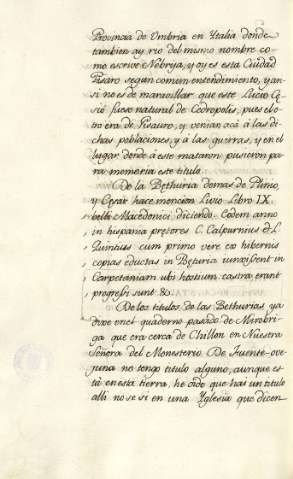 Provincia de Umbria en Ytalia donde
tambien ay rio del mismo nombre co-
mo escrive Nebrija, y oy es esta Ciudad
Pisaro segun comun entendimiento, y an-
si no es de maravillar que este Lucio Ca-
sio fuese natural de Cedropolis, pues el o-
tro era de Pisauro, y venian acá á las di-
chas poblaciones, y á las guerras, y en el
lugar donde á este mataron pusieron pa-
ra memoria este titulo.
De la Bethuria demas de Plinio,
y Cesar hace mencion Livio Libro IX
belli Macedonici diciendo: Eodem anno
in hispania pretores C. Calpurnius & L.
Quintius cum primo vere ex hibernis
copias eductas in Beturia iunxissent in
Carpetaniam ubi hostium castra erant
progresi sunt &c.
De los titulos de las Bethurias ya
dixe en el quaderno pasado de Mirobri-
ga que era cerca de Chillon en Nuestra
Señora del Monesterio. De Fuente-ove-
juna no tengo titulo alguno, aunque es-
tá en esta tierra, he oido que hai un titulo
alli no se si en una Yglesia que dicen